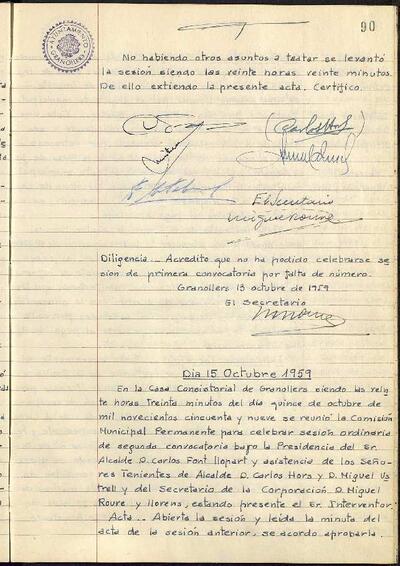 90
AYUNTAMIENTO
GRANOLLERS
No habiendo otros asuntos a teatar se levantó
la sesión siendo las veinte horas veinte minutos.
De ello extiendo la presente acta. Certifico.
El Secretario
Diligencia.- Acredito que no ha podido celebrarse se
sion de primera convocatoria por falta de número.
Granollers 13 octubre de 1959
El Secretario
Dia 15 Octubre 1959
En la Casa Consistorial de Granollers siendo las vein
te horas Treinta minutos del día quince de octubre de
mil novecientos cincuenta y nueve se reunió la Comisión
Municipal Permanente para celebrar sesión ordinaria
de segunda convocatoria bajo la Presidencia del Sr.
Alcalde D. Carlos Font llopart y asistencia de los Seño
res Tenientes de Alcalde D. Carlos Hors y D. Miguel Us
trell y del Secretario de la Corporación D. Miguel
Roure y llorens, estando presente el Sr. Interventor.
Acta.- Abierta la sesión y leida la minuta del
acta de la sesión anterior, se acordo aprobarla.